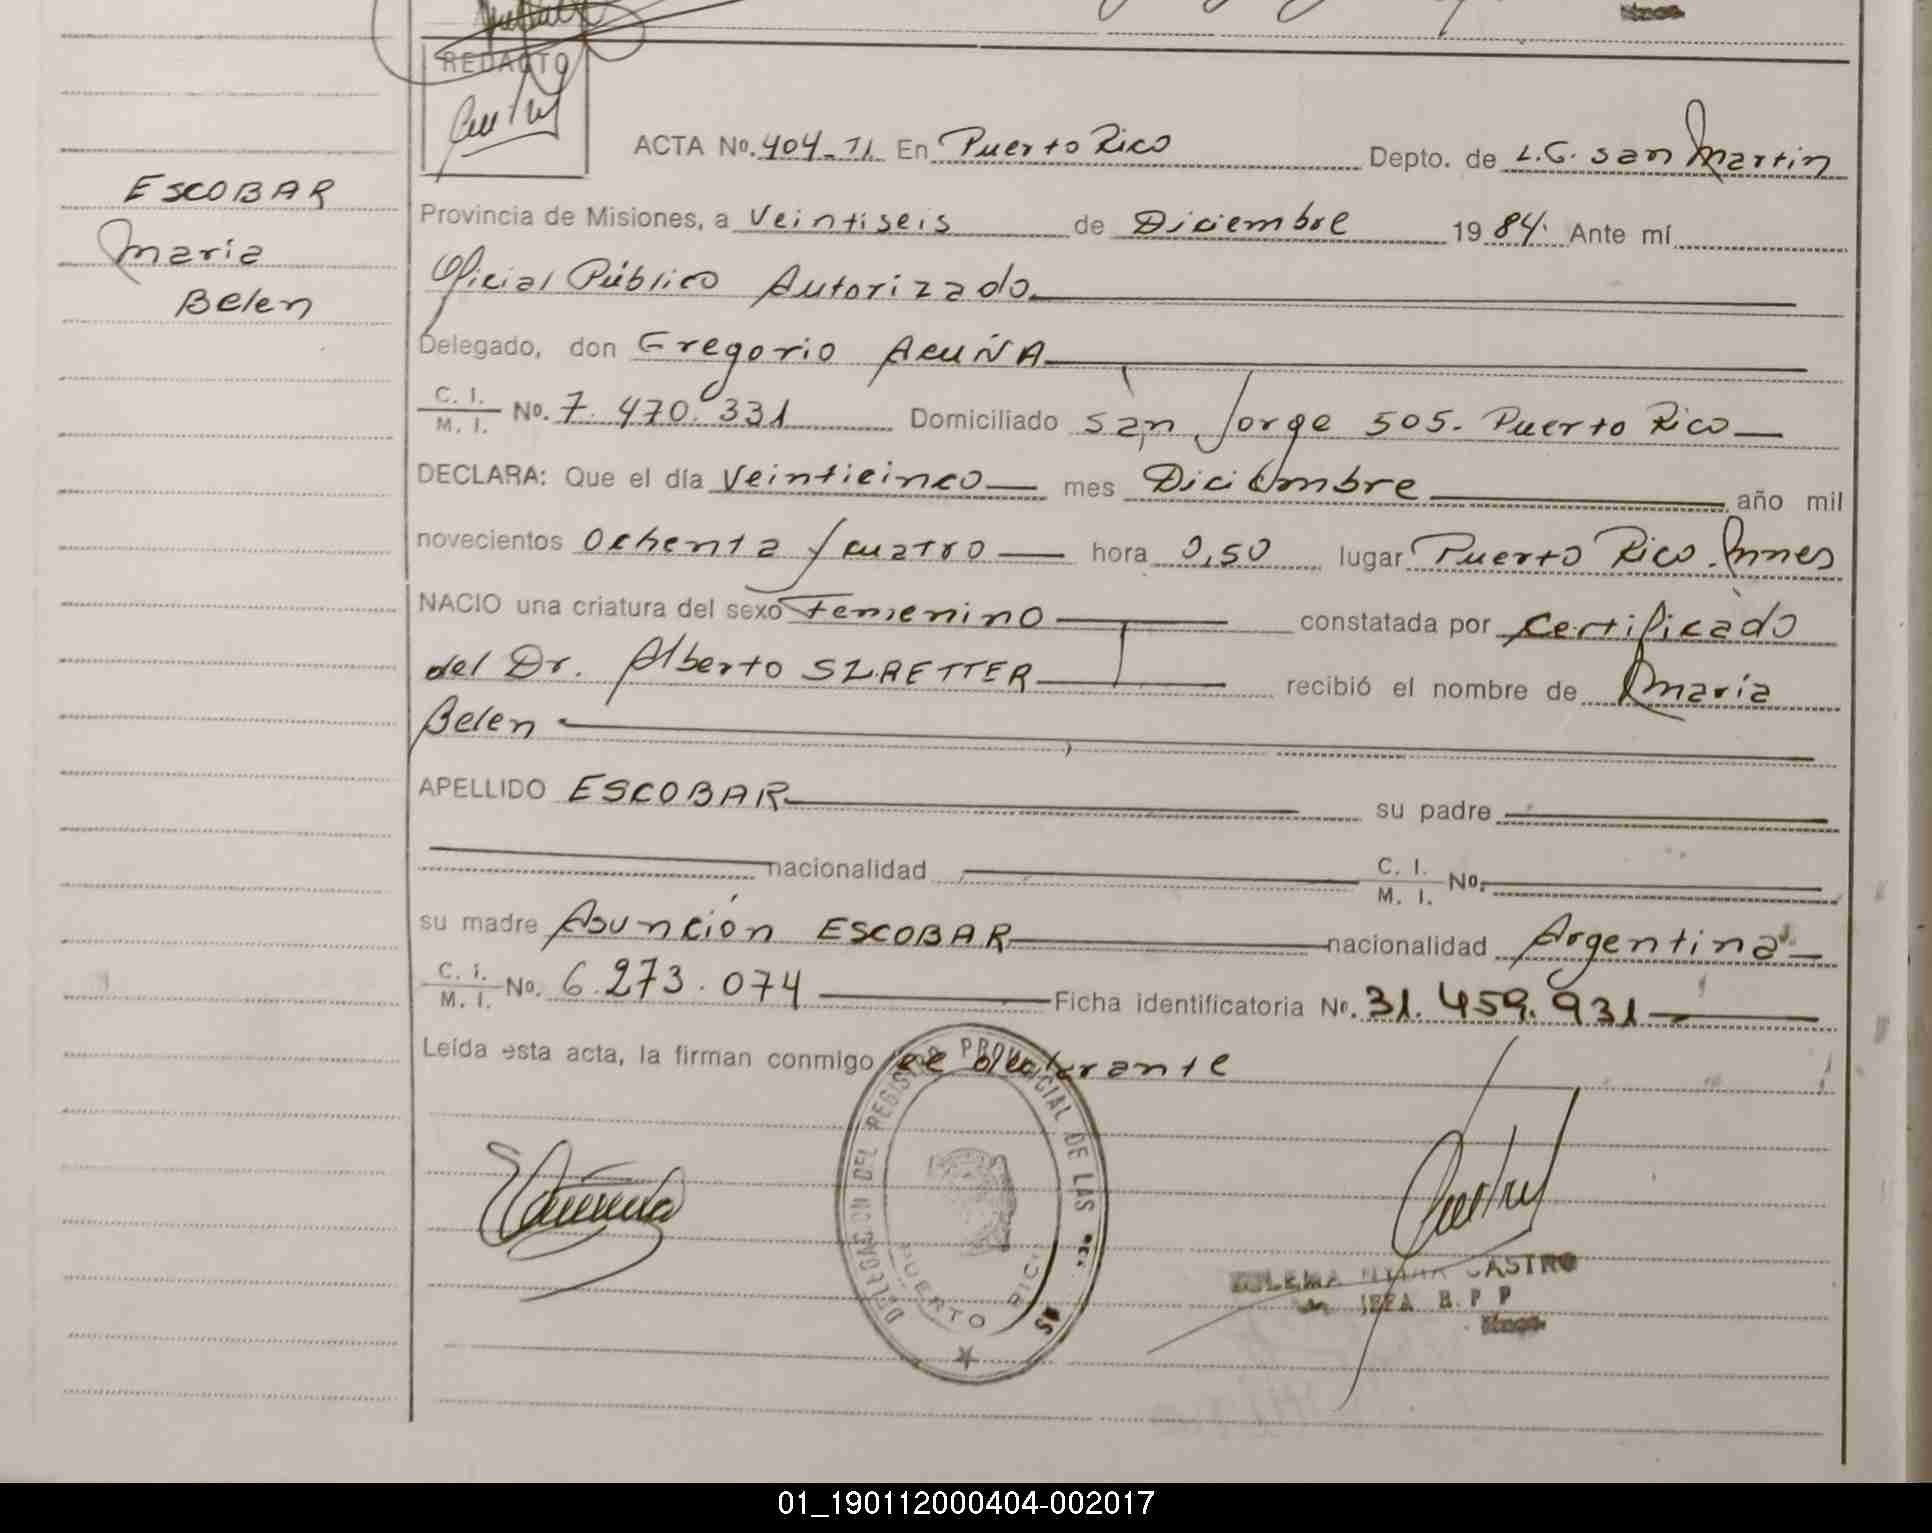 REDACTO
ACTA No. 404-T1. En Puerto Rico Depto. de L.G. san Martin
ESCOBAR
Maria
Belen
Provincia de Misiones, a Veintiseis de Diciembre 1984. Ante mí
Oficial Público Autorizado
Delegado, don Gregorio ACUÑA
C. I. M. I. No. 7.470.331 Domiciliado San Jorge 505. Puerto Rico
DECLARA: Que el día Veinticinco mes Diciembre año mil
novecientos Ochenta y cuatro hora 0,50 lugar Puerto Rico. Mnes
NACIO una criatura del sexo Femenino constatada por Certificado
del Dr. Alberto SZAETTER recibió el nombre de María
Belen
APELLIDO ESCOBAR su padre
nacionalidad C. I. M. I. No.
su madre Asunción ESCOBAR nacionalidad Argentina
C. I. M. I. No. 6.273.074 Ficha identificatoria No. 31.459.931
Leída esta acta, la firman conmigo el declarante
DELEGACION DEL REGISTRO PROVINCIAL DE LAS
PUERTO RICO
CASTRO
JEFA R. P. P
01_190112000404-002017